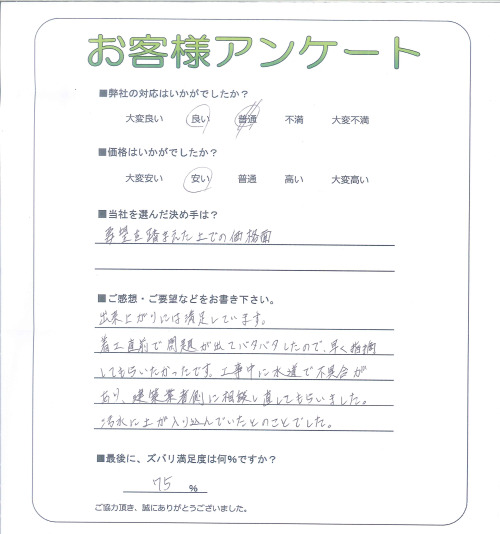 お客様アンケート
■弊社の対応はいかがでしたか？
大変良い 良い 普通 不満 大変不満
■価格はいかがでしたか？
大変安い 安い 普通 高い 大変高い
■当社を選んだ決め手は？
希望を踏まえた上での価格面
■ご感想・ご要望などをお書き下さい。
出来上がりには満足しています。
着工直前で問題が出てバタバタしたので、早く指摘
してもらいたかったです。工事中に水道で不具合が
あり、建築業者側に相談し直してもらいました。
汚水に土が入り込んでいたとのことでした。
■最後に、ズバリ満足度は何％ですか？
75 ％
ご協力頂き、誠にありがとうございました。